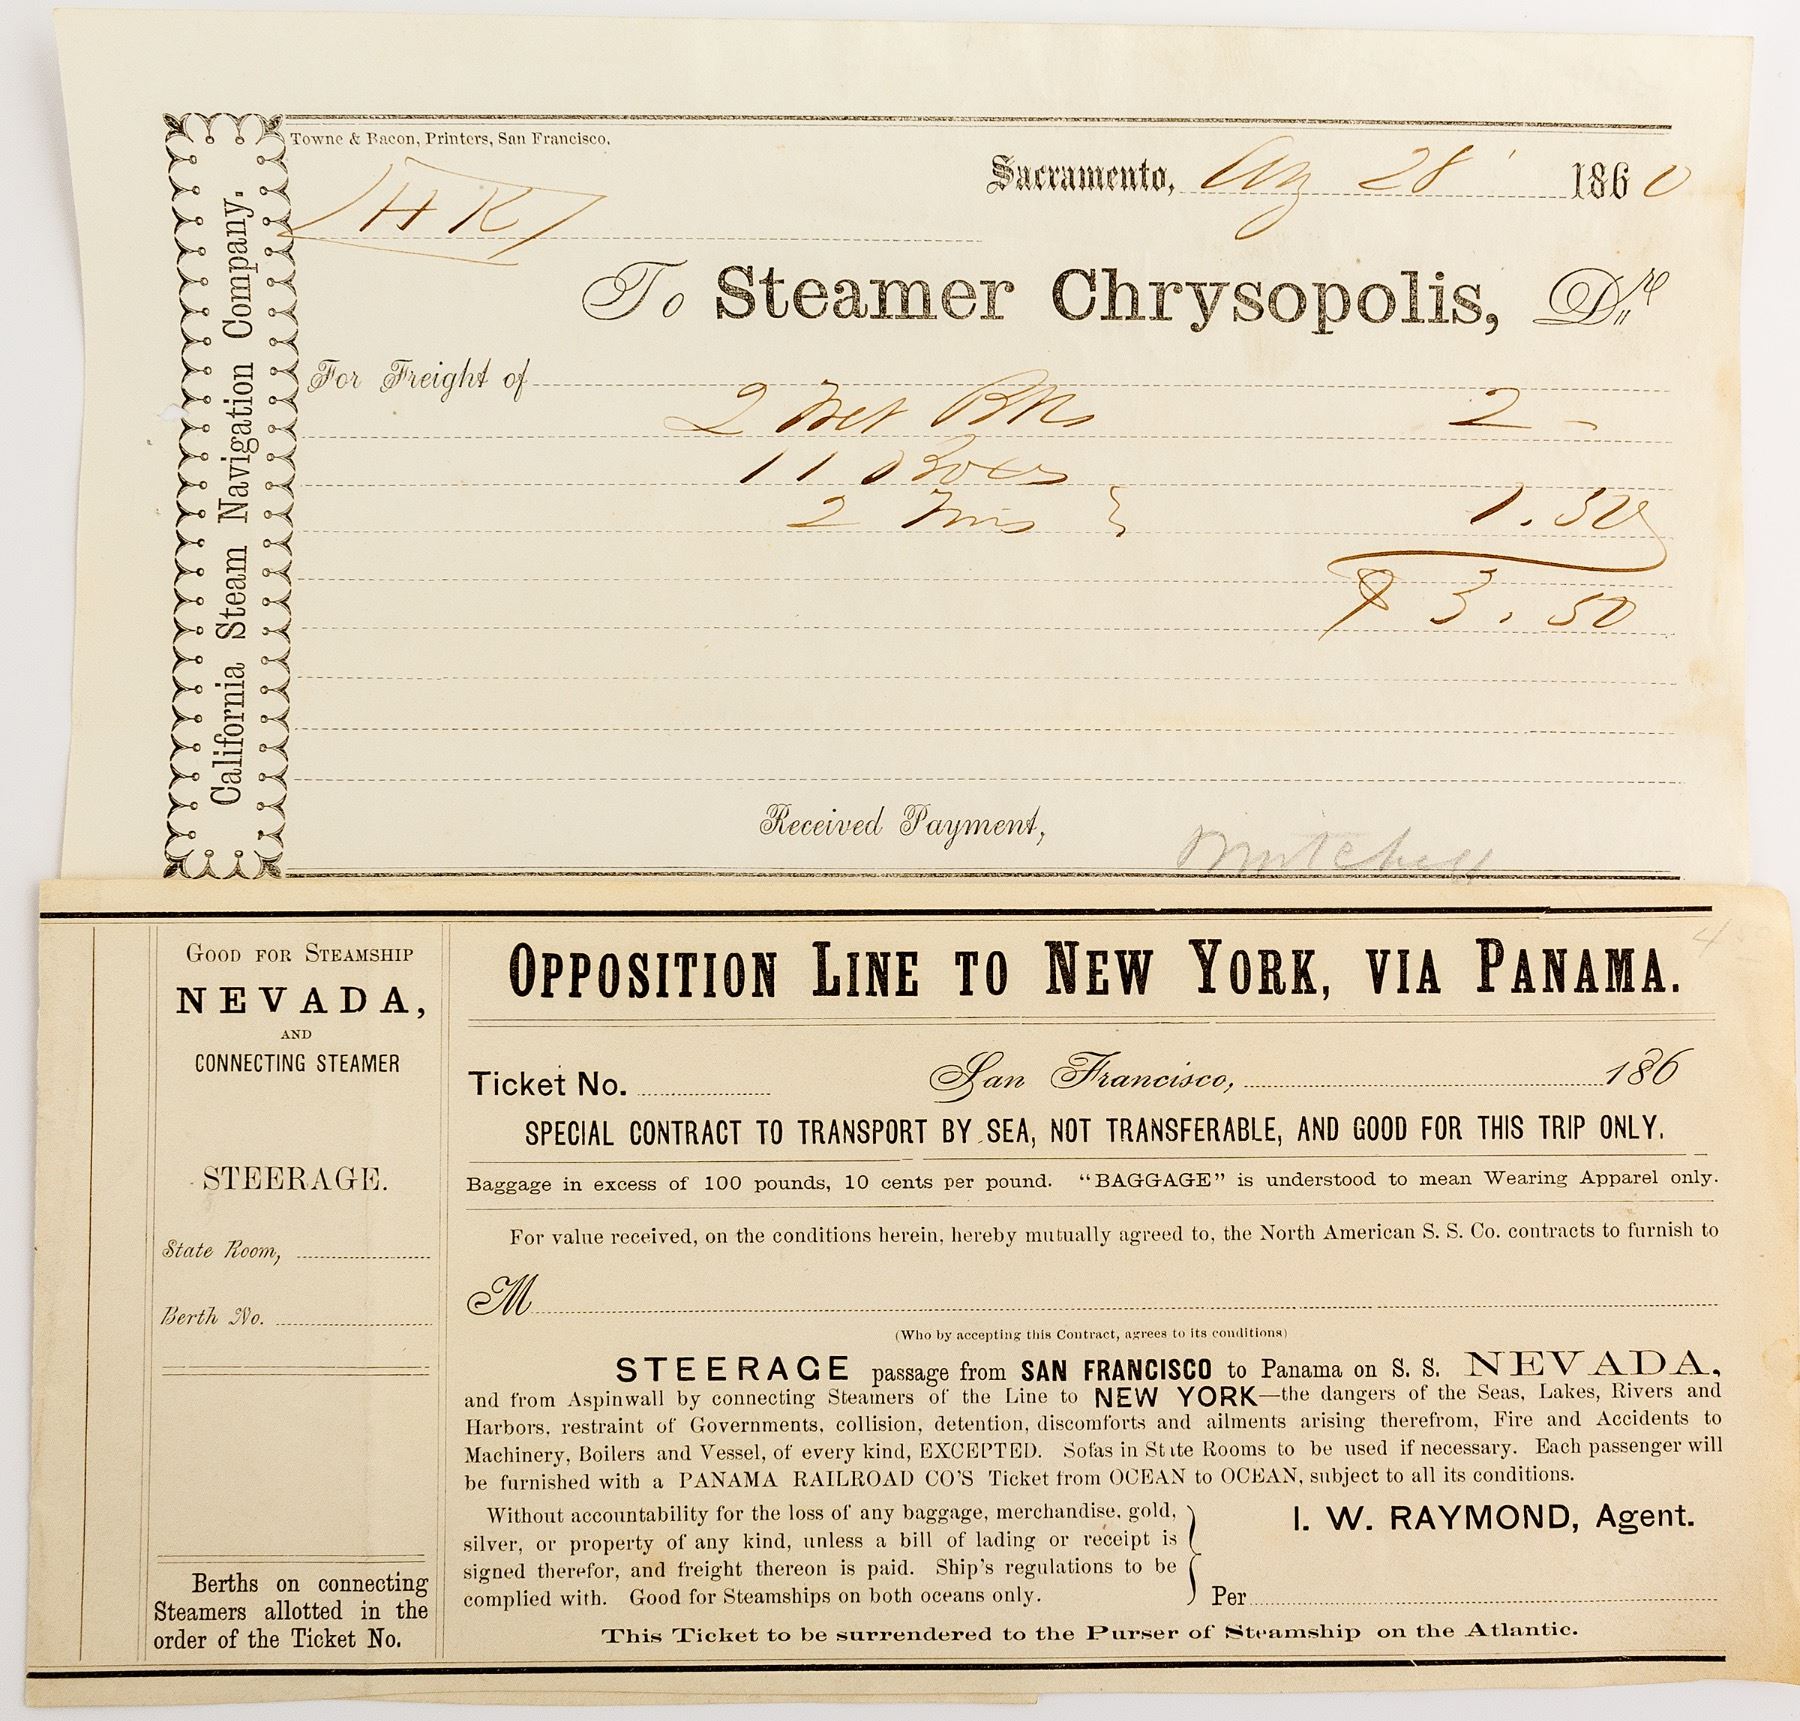 Towne & Bacon, Printers, San Francisco.
California Steam Navigation Company.
Sacramento, Aug 28 1860
H K
To Steamer Chrysopolis, Dr
For Freight of
2 Bbls 2 -
11 Boxes
2 1.50
$ 3.50
Received Payment,
Mitchell
4
GOOD FOR STEAMSHIP
NEVADA,
AND
CONNECTING STEAMER
STEERAGE.
State Room,
Berth No.
Berths on connecting
Steamers allotted in the
order of the Ticket No.
OPPOSITION LINE TO NEW YORK, VIA PANAMA.
Ticket No. San Francisco, 186
SPECIAL CONTRACT TO TRANSPORT BY SEA, NOT TRANSFERABLE, AND GOOD FOR THIS TRIP ONLY.
Baggage in excess of 100 pounds, 10 cents per pound. "BAGGAGE" is understood to mean Wearing Apparel only.
For value received, on the conditions herein, hereby mutually agreed to, the North American S. S. Co. contracts to furnish to
M
(Who by accepting this Contract, agrees to its conditions)
STEERAGE passage from SAN FRANCISCO to Panama on S. S. NEVADA,
and from Aspinwall by connecting Steamers of the Line to NEW YORK—the dangers of the Seas, Lakes, Rivers and
Harbors, restraint of Governments, collision, detention, discomforts and ailments arising therefrom, Fire and Accidents to
Machinery, Boilers and Vessel, of every kind, EXCEPTED. Sofas in State Rooms to be used if necessary. Each passenger will
be furnished with a PANAMA RAILROAD CO'S Ticket from OCEAN to OCEAN, subject to all its conditions.
Without accountability for the loss of any baggage, merchandise, gold,
silver, or property of any kind, unless a bill of lading or receipt is
signed therefor, and freight thereon is paid. Ship's regulations to be
complied with. Good for Steamships on both oceans only.
I. W. RAYMOND, Agent.
Per
This Ticket to be surrendered to the Purser of Steamship on the Atlantic.